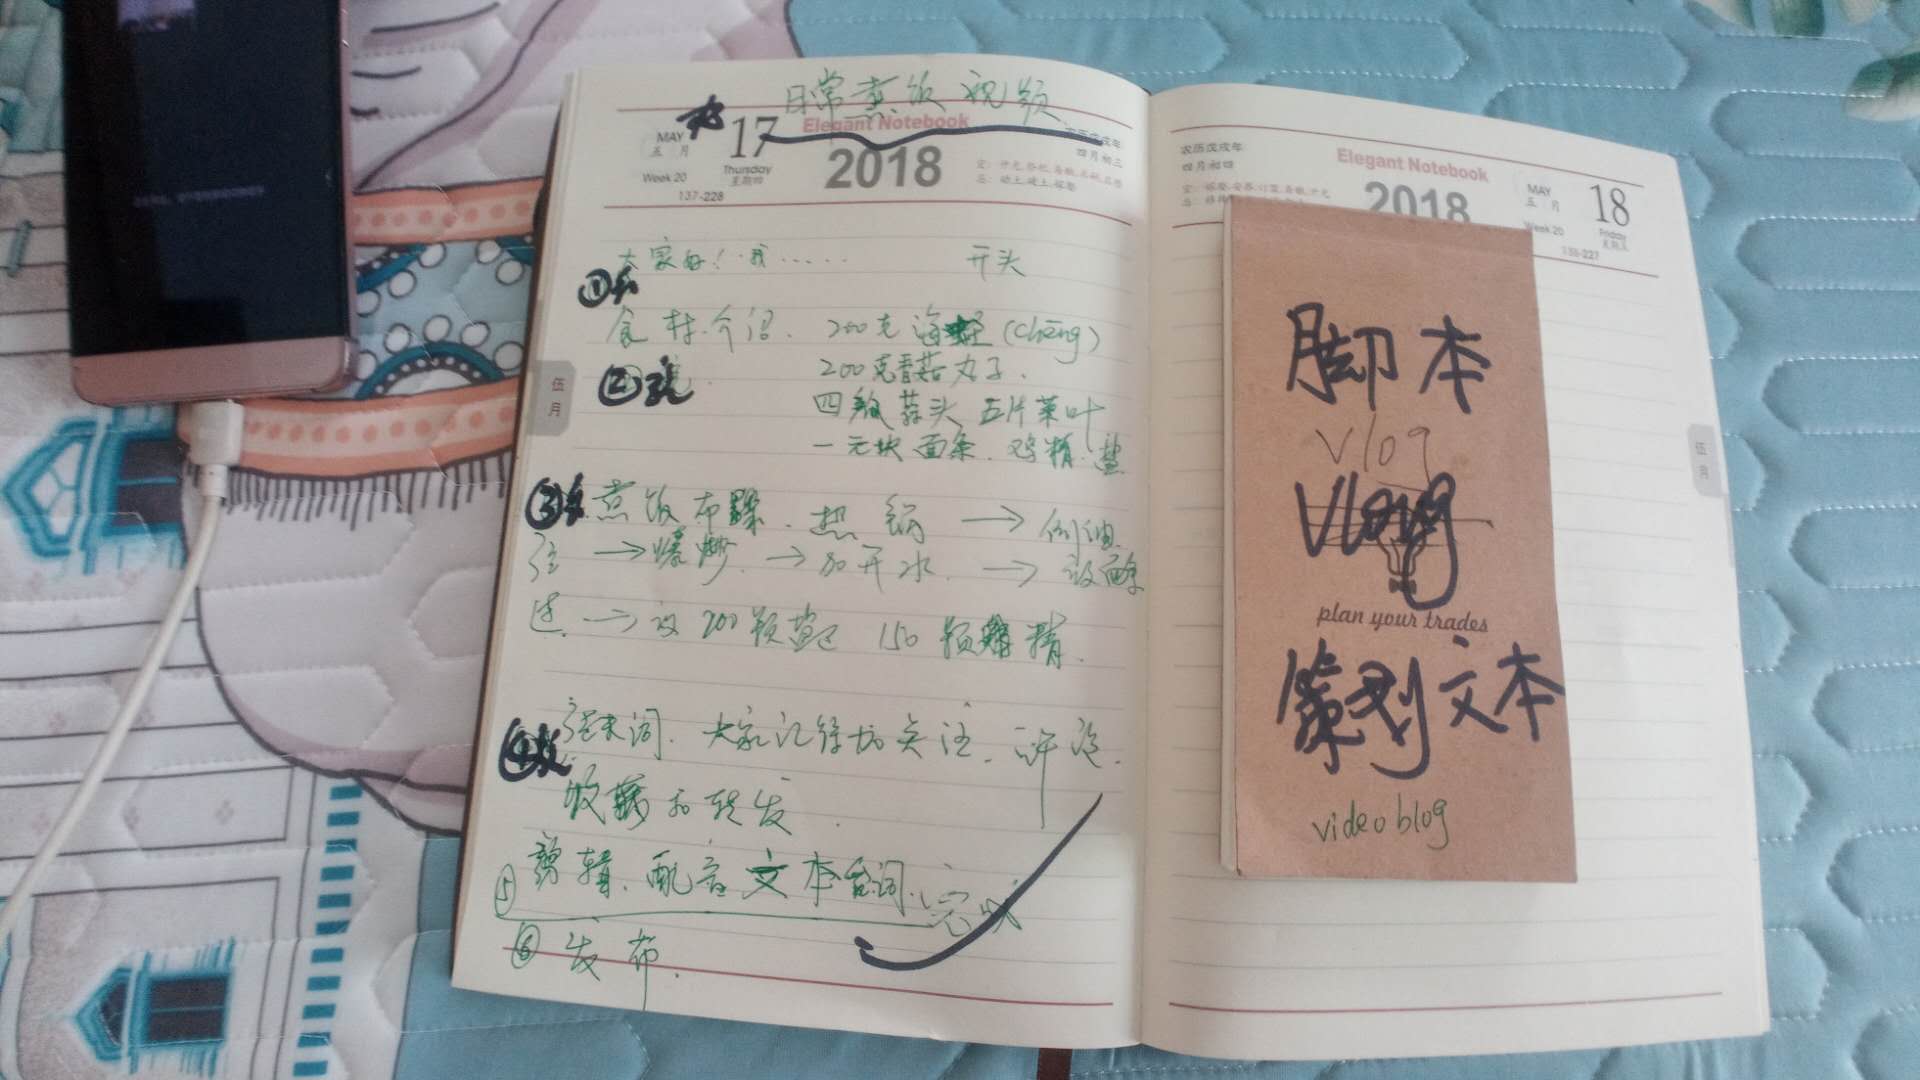 日常煮饭视频
MAY 17 Elegant Notebook
五 月 Thursday 2018 四月初三
Week 20 星期四
137-228
大家好！我...... 开头
①
食材介绍. 200克海蛏(chēng)
② 200克香菇丸子.
四颗蒜头 五片菜叶
一元块面条. 鸡精. 盐
③ 煮饭布骤. 热锅 → 倒油
→ 爆炒. → 加开水. → 放面条
→ 放200颗盐 150颗鸡精.
④ 结束词. 大家记得加关注. 评论.
收藏和转发.
⑤ 剪辑. 配音文本台词. 完成
⑥ 发布.
伍月
农历戊戌年
四月初四 Elegant Notebook MAY 18
2018 五 月 Friday
Week 20
138-227
伍月
脚本
Vlog
Vlog
plan your trades
策划文本
video blog